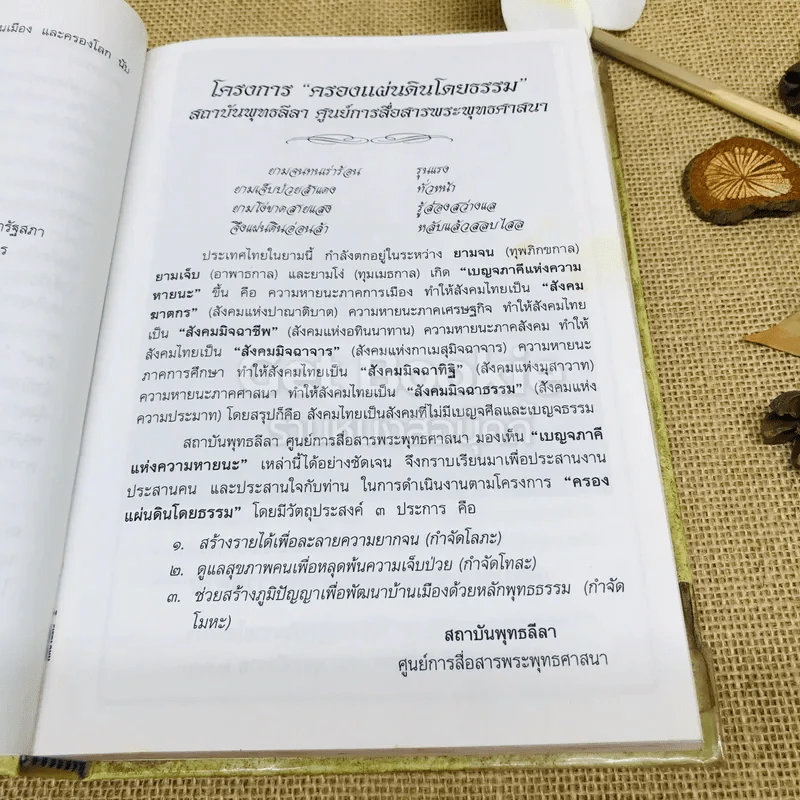 นเมือง และครองโลก นับ
ารัฐสภา
าร
โครงการ “ครองแผ่นดินโดยธรรม”
สถาบันพุทธลีลา ศูนย์การสื่อสารพระพุทธศาสนา
ยามจนทนเร่าร้อน รุนแรง
ยามเจ็บป่วยสำแดง ทั่วหน้า
ยามโง่ขาดสายแสง รู้ส่องสว่างแล
จึงแผ่นดินอ่อนล้า หลับแล้วสลบไสล
ประเทศไทยในยามนี้ กำลังตกอยู่ในระหว่าง ยามจน (ทุพภิกขกาล)
ยามเจ็บ (อาพาธกาล) และยามโง่ (ทุมเมธกาล) เกิด “เบญจภาคีแห่งความ
หายนะ” ขึ้น คือ ความหายนะภาคการเมือง ทำให้สังคมไทยเป็น “สังคม
ฆาตกร” (สังคมแห่งปาณาติบาต) ความหายนะภาคเศรษฐกิจ ทำให้สังคมไทย
เป็น “สังคมมิจฉาชีพ” (สังคมแห่งอทินนาทาน) ความหายนะภาคสังคม ทำให้
สังคมไทยเป็น “สังคมมิจฉาจาร” (สังคมแห่งกาเมสุมิจฉาจาร) ความหายนะ
ภาคการศึกษา ทำให้สังคมไทยเป็น “สังคมมิจฉาทิฐิ” (สังคมแห่งมุสาวาท)
ความหายนะภาคศาสนา ทำให้สังคมไทยเป็น “สังคมมิจฉาธรรม” (สังคมแห่ง
ความประมาท) โดยสรุปก็คือ สังคมไทยเป็นสังคมที่ไม่มีเบญจศีลและเบญจธรรม
สถาบันพุทธลีลา ศูนย์การสื่อสารพระพุทธศาสนา มองเห็น “เบญจภาคี
แห่งความหายนะ” เหล่านี้ได้อย่างชัดเจน จึงกราบเรียนมาเพื่อประสานงาน
ประสานคน และประสานใจกับท่าน ในการดำเนินงานตามโครงการ “ครอง
แผ่นดินโดยธรรม” โดยมีวัตถุประสงค์ ๓ ประการ คือ
๑. สร้างรายได้เพื่อละลายความยากจน (กำจัดโลภะ)
๒. ดูแลสุขภาพคนเพื่อหลุดพ้นความเจ็บป่วย (กำจัดโทสะ)
๓. ช่วยสร้างภูมิปัญญาเพื่อพัฒนาบ้านเมืองด้วยหลักพุทธธรรม (กำจัด
โมหะ)
สถาบันพุทธลีลา
ศูนย์การสื่อสารพระพุทธศาสนา